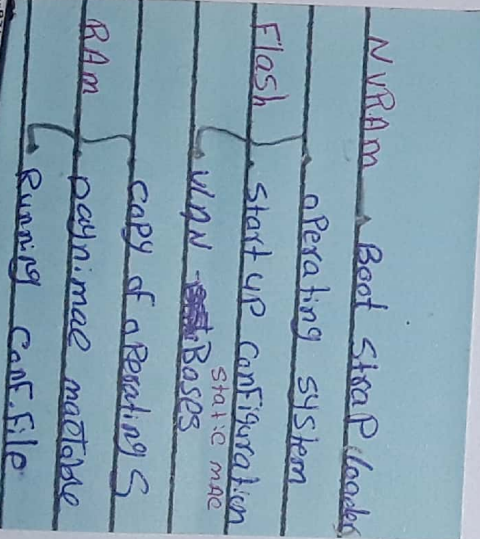 NVRAM Boot strap loader
operating system
Flash start up configuration
static mac
VLAN Bases
copy of operating S
RAM paynimae mactable
Running conf.file